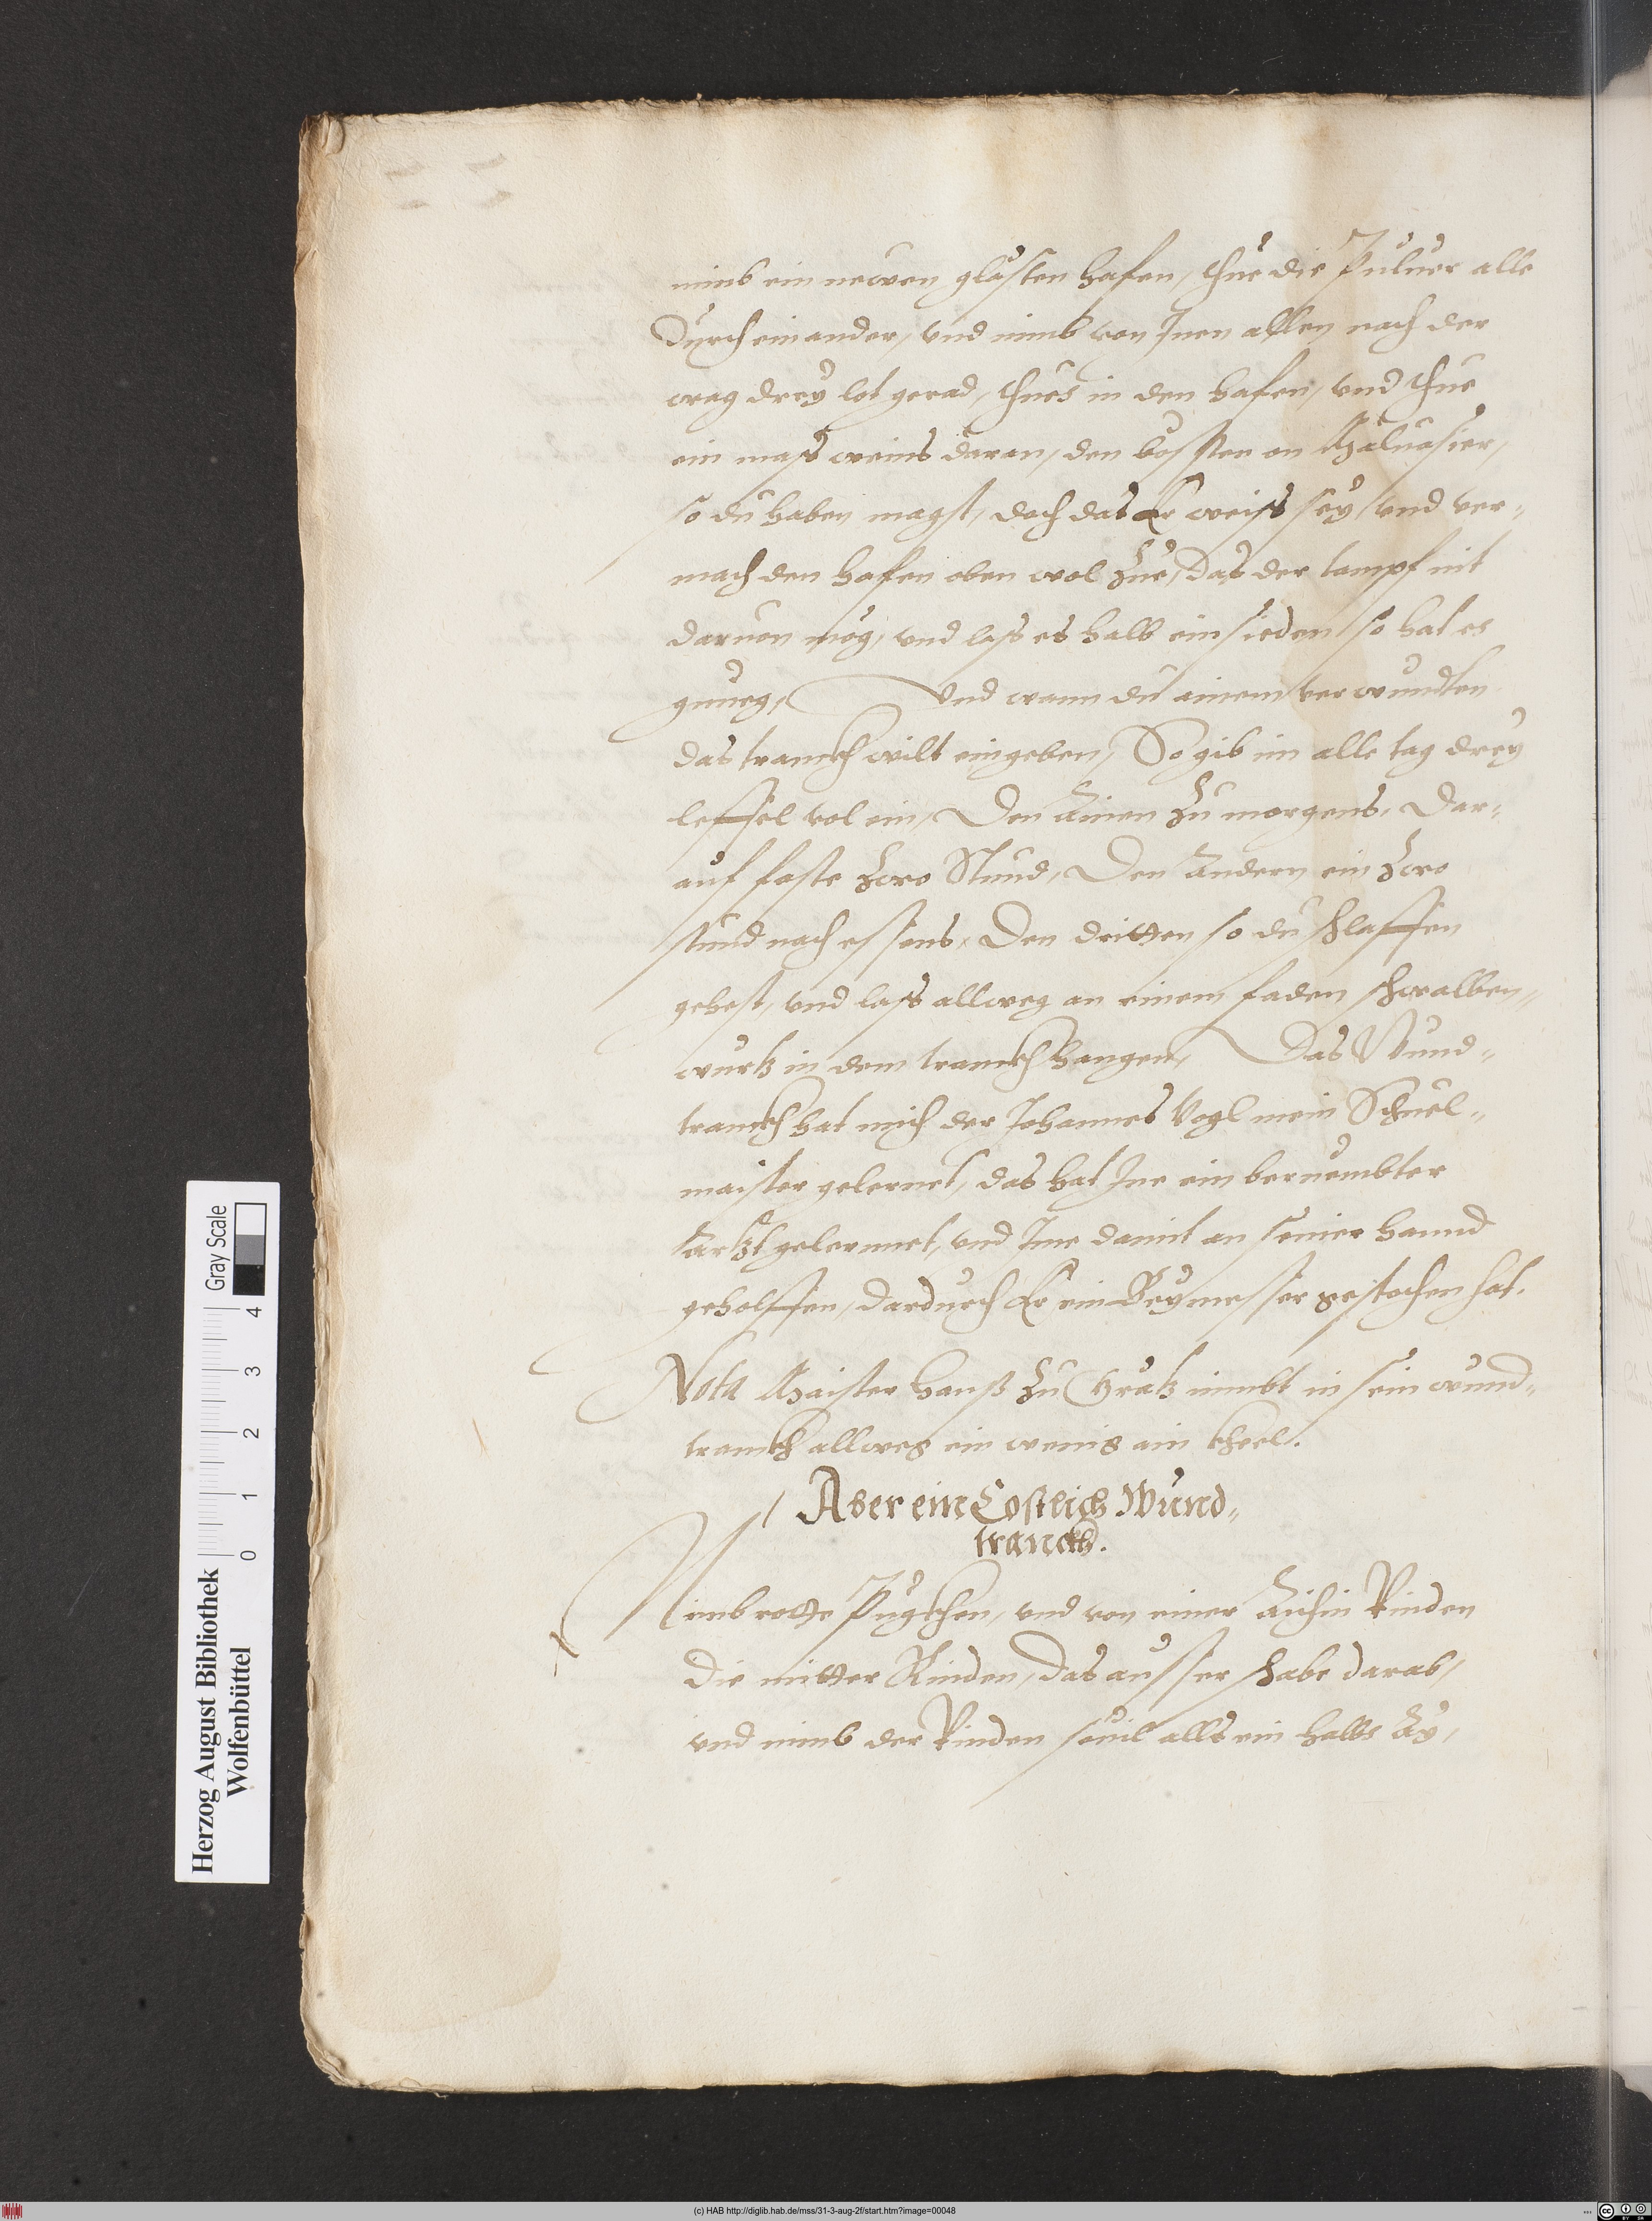 nimb ein newen glästen hafen, thue die Puluer alle
Durcheinander, vnd nimb von Inen allen nach der
wag drey lot gerad, thues in den hafen, vnd thue
ein mass weins daran, den bessten on Maluasier,
so du haben magst, doch das Er weiss sey, vnd ver„
mach den hafen oben wol zue, Das der tampf nit
daruon müg, vnd lass es halb einsieden so hat es
gnueg, Vnd wann du ainem verwundten
das tranckh wilt eingeben, So gib im alle tag drey
leffel vol ein, Den Ainen zu morgens, Dar„
auf faste zwo Stund, Den Andern ein zwo
stund nach essens, Den dritten so du schlaffen
gehest, vnd lass allweg an einem faden schwalben„
wurtz in dem tranckh hangen, Das Wund„
tranckh hat mich der Johannes Vogl mein Schuel„
maister gelernet, das hat Ine ein beruembter
Artzt gelernnet, vnd Ime damit an seiner hannd
geholffen, dardurch Er ein Beymesser gestochen hat.
Nota Maister Hanß zu Grätz nimbt in sein wund„
tranckh allweg ein wenig ain kheel.
Aber ein Costlich Wund„
tranckh.
Nimb rotte Pugkhen, vnd von einer Aichin Rinden
die mitter Rinden, das ausser schabe darab,
vnd nimb der Rinden souil alls ein halbs Ay,
Herzog August Bibliothek
Wolfenbüttel
0 1 2 3 4
Gray Scale
(c) HAB http://diglib.hab.de/mss/31-3-aug-2f/start.htm?image=00048